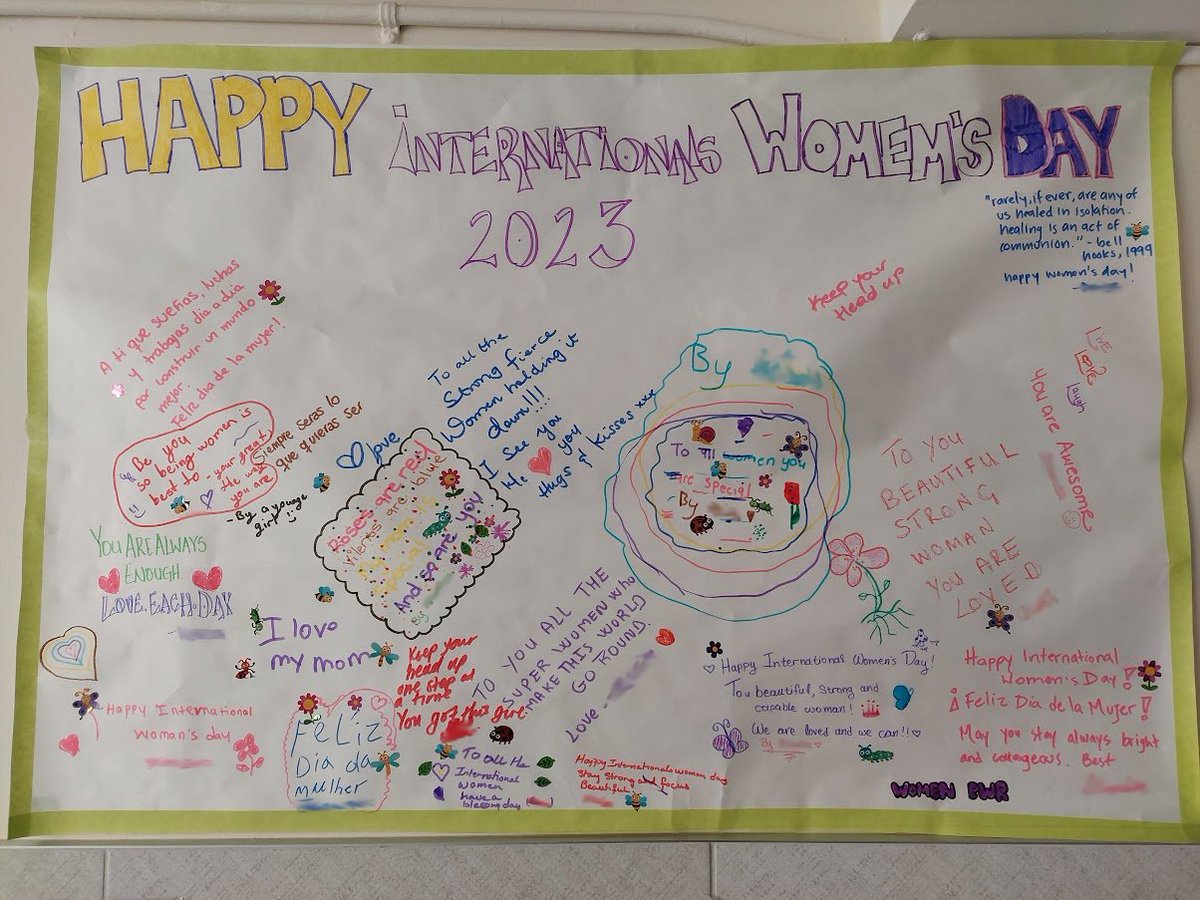 HAPPY iNTERNATIONAS WOMEM'S DAY
2023
"rarely, if ever, are any of
us healed in isolation.
healing is an act of
communion." - bell
hooks, 1999
happy women's day!
Keep your
Head up
A ti que sueñas, luchas
y trabajas dia a dia
por construir un mundo
mejor.
Feliz dia de la mujer!
Be you
so being women is
best to - your great
you are
Siempre seras lo
que quieras ser
- By a younge
girl
love
To all the
Strong fierce
Women holding it
down!!!
I see you
you
Hugs & Kisses xxx
Roses are red
Special
And so are you
By
By
To all women you
are special
By
LIVE
Love
laugh
you are Awesome
TO YOU
BEAUTIFUL
STRONG
WOMAN
YOU ARE
LOVED
YOU ARE ALWAYS
ENOUGH
LOVE.EACH.DAY
I love
my mom
Keep your
head up
one step at
a time
You got this girl
TO YOU ALL THE
SUPER WOMEN who
MAKE THIS WORLD
GO ROUND.
LOVE
Happy International
Woman's day
FELIZ
DIA da
mulher
To all the
International
Women
have a
blessing day
Happy Internationa woman day
Stay Strong and focus
Beautiful
Happy International Women's Day!
To u beautiful, Strong and
capable woman!
We are loved and we can!!
By
Happy International
Women's Day!
¡Feliz Dia de la Mujer!
May you stay always bright
and courageous. Best
WOMEN PWR